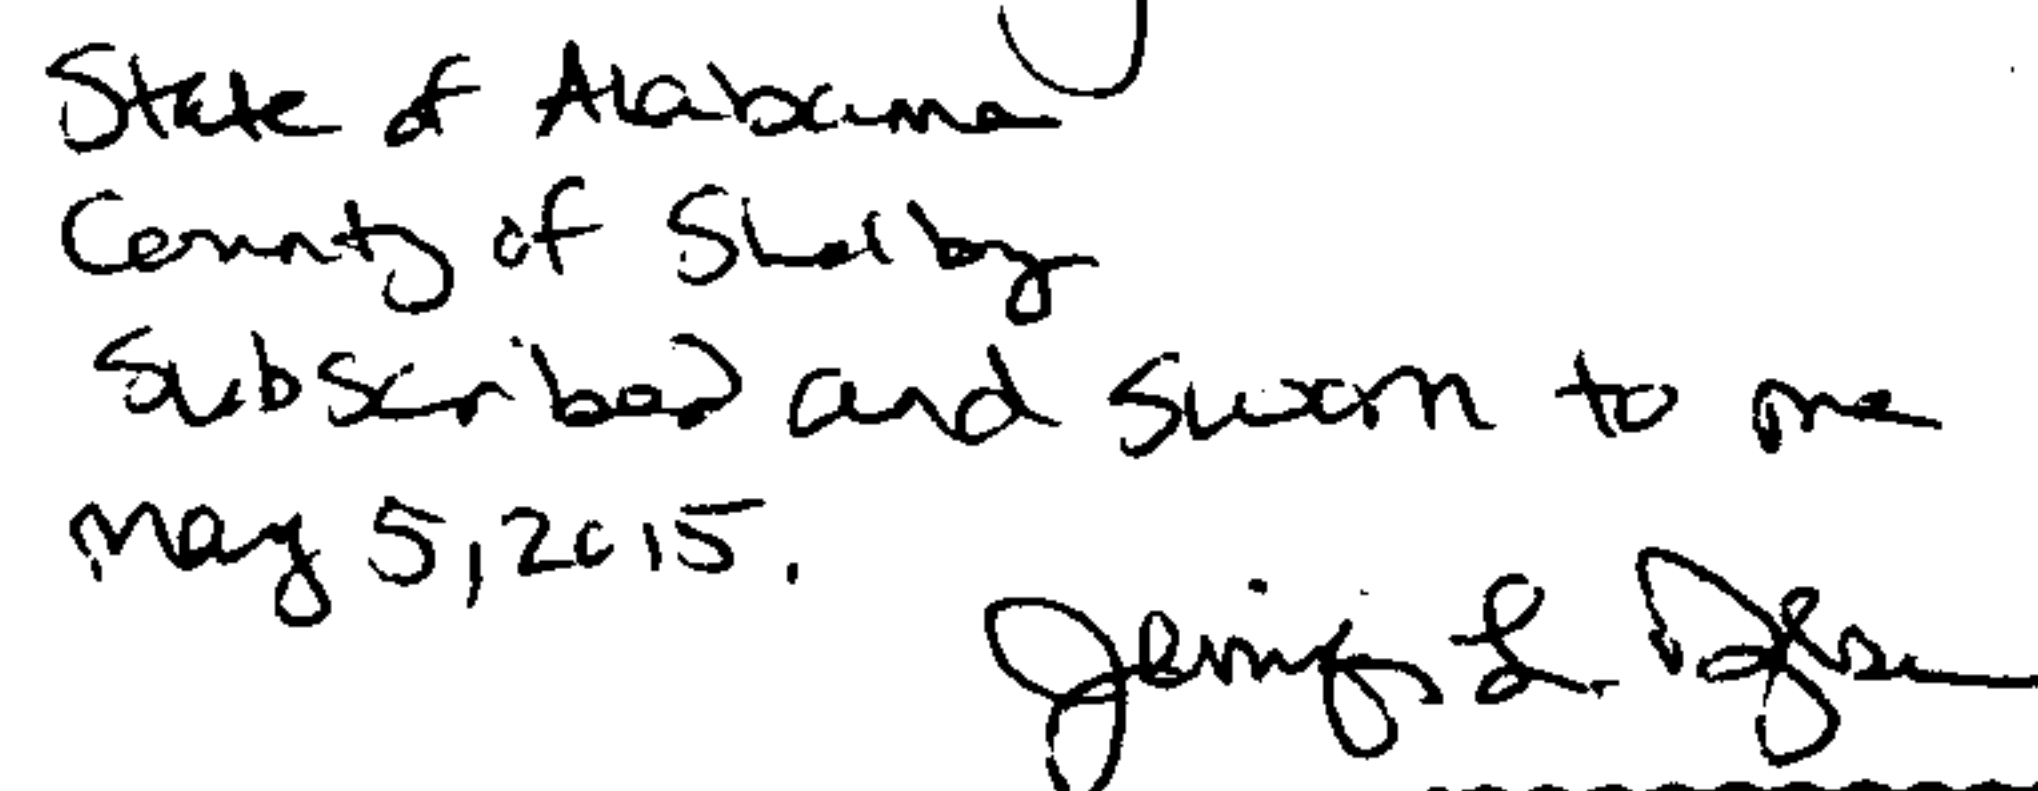 State of Alabama
County of Shelby
Subscribed and sworn to me
May 5, 2015.
L.